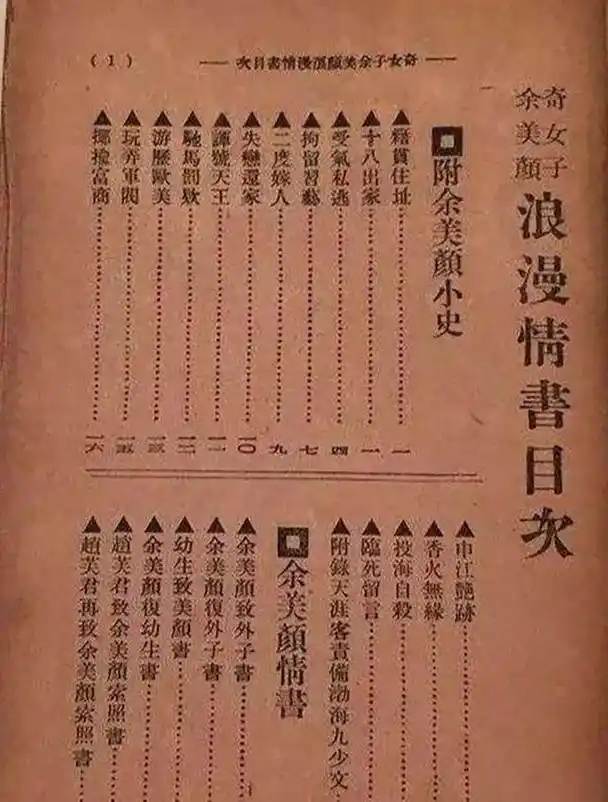 奇女子余美顏浪漫情書目次 (1)
奇女子
余美顏
浪漫情書目次
附余美顏小史
▲籍貫住址………一
▲十八出家………一
▲受氣私逃………四
▲拘留習藝………七
▲二度嫁人………九
▲失戀還家………一〇
▲諢號天王………一一
▲馳馬罰欵………一二
▲游歷歐美………一三
▲玩弄軍閥………一五
▲揶揄富商………一六
▲申江艷跡………
▲香火無緣………
▲投海自殺………
▲臨死留言………
▲附錄天涯客責備渤海九少文
余美顏情書
▲余美顏致外子書………
▲余美顏復外子書………
▲幼生致美顏書………
▲余美顏復幼生書………
▲趙芙君致余美顏索照書………
▲趙芙君再致余美顏索照書………